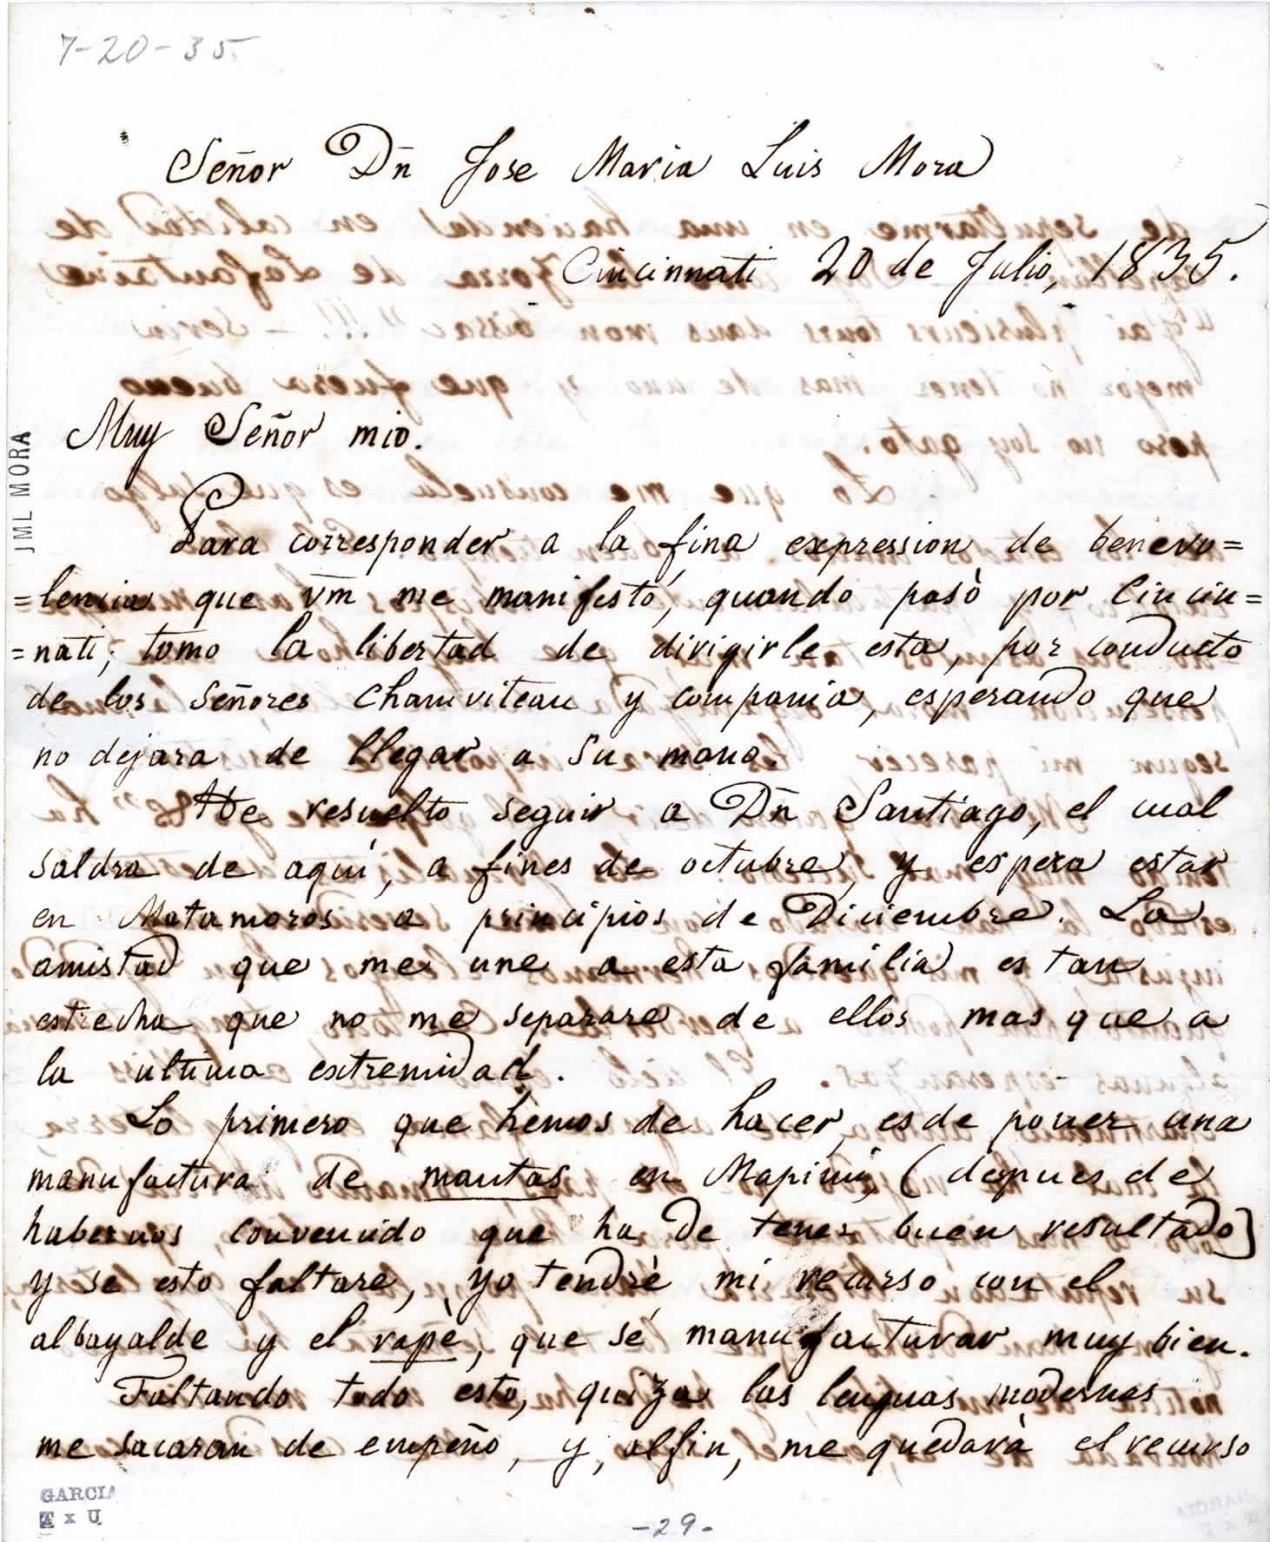 7-20-35
Señor Dn Jose Maria Luis Mora
Cincinnati 20 de Julio, 1835.
Muy Señor mio.
Para corresponder a la fina expression de benevo=
=lencia que Vm me manifestó, quando pasò por Cincin=
=nati, tomo la libertad de dirigirle esta, por conducto
de los Señores Chamviteau y compania, esperando que
no dejara de llegar a su mano.
He resuelto seguir a Dn Santiago, el cual
saldra de aquí, a fines de octubre, y espera estar
en Matamoros a principios de Diciembre. La
amistad que me une a esta familia es tan
estrecha que no me separare de ellos mas que a
la ultima extremidad.
Lo primero que hemos de hacer, es de poner una
manufactura de mantas en Mapimi, (depues de
habernos convenido que ha de tener buen resultado)
y se esto faltare, yo tendrè mi recurso con el
albayalde y el rapè, que sé manufacturar muy bien.
Faltando todo esto, quiza las lenguas modernas
me sacaran de empeño, y, alfin, me quedarà el recurso
JML MORA
GARCIA
T x U
-29-